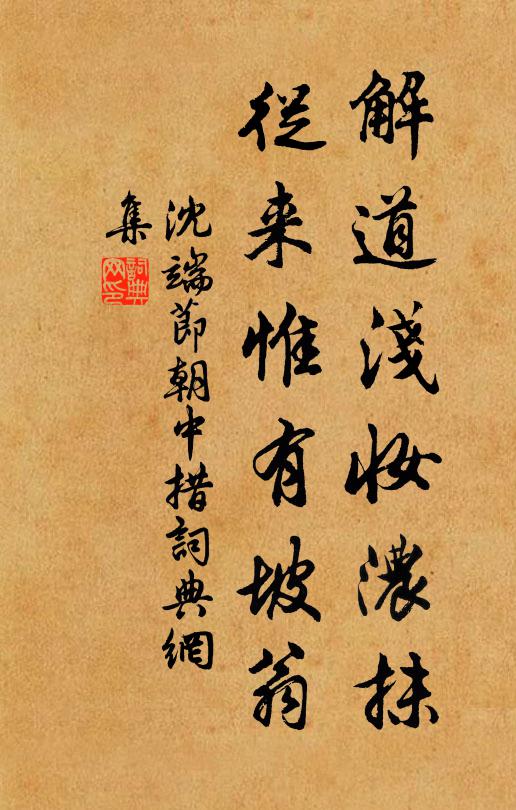 解道淺妝濃抹
從来惟有坡翁
沈端節朝中措詞典網
集
詞典网印